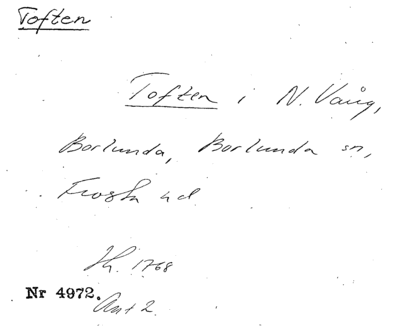 Toften
Toften i N. Vång,
Borlunda, Borlunda sn,
Frosta hd
Lh. 1768
Nr 4972.
Akt 2.